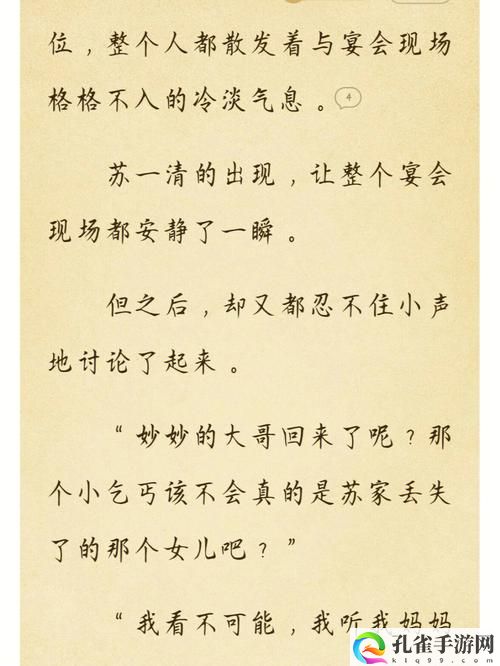 位，整个人都散发着与宴会现场
格格不入的冷淡气息。 4
苏一清的出现，让整个宴会
现场都安静了一瞬。
但之后，却又都忍不住小声
地讨论了起来。
“妙妙的大哥回来了呢？那
个小乞丐该不会真的是苏家丢失
了的那个女儿吧？”
“我看不可能，我听我妈妈
孔雀手游网
www.klq99.com